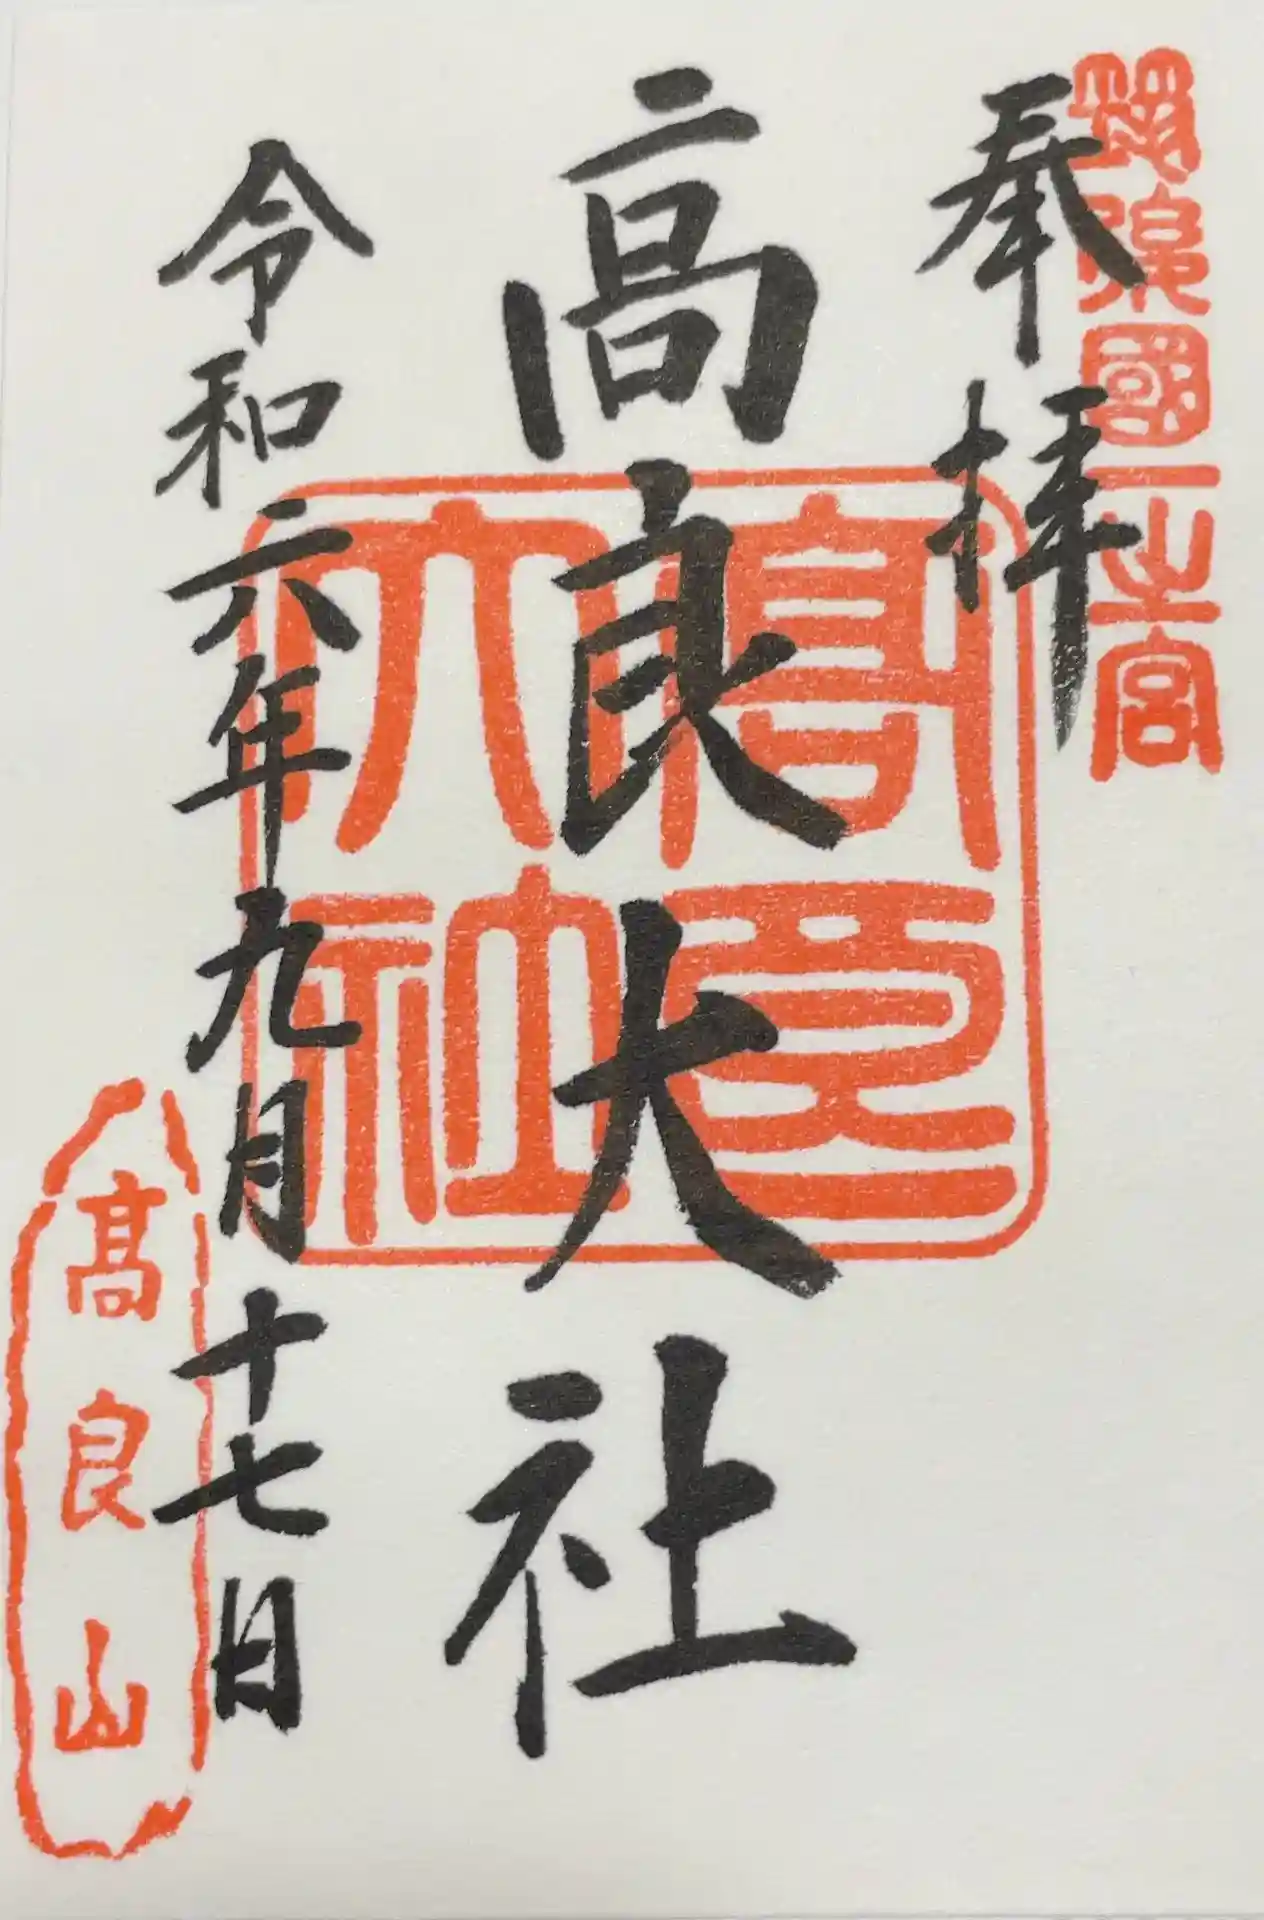 筑後國一之宮
奉拝
高良大社
髙良大社
令和六年九月十七日
髙良山